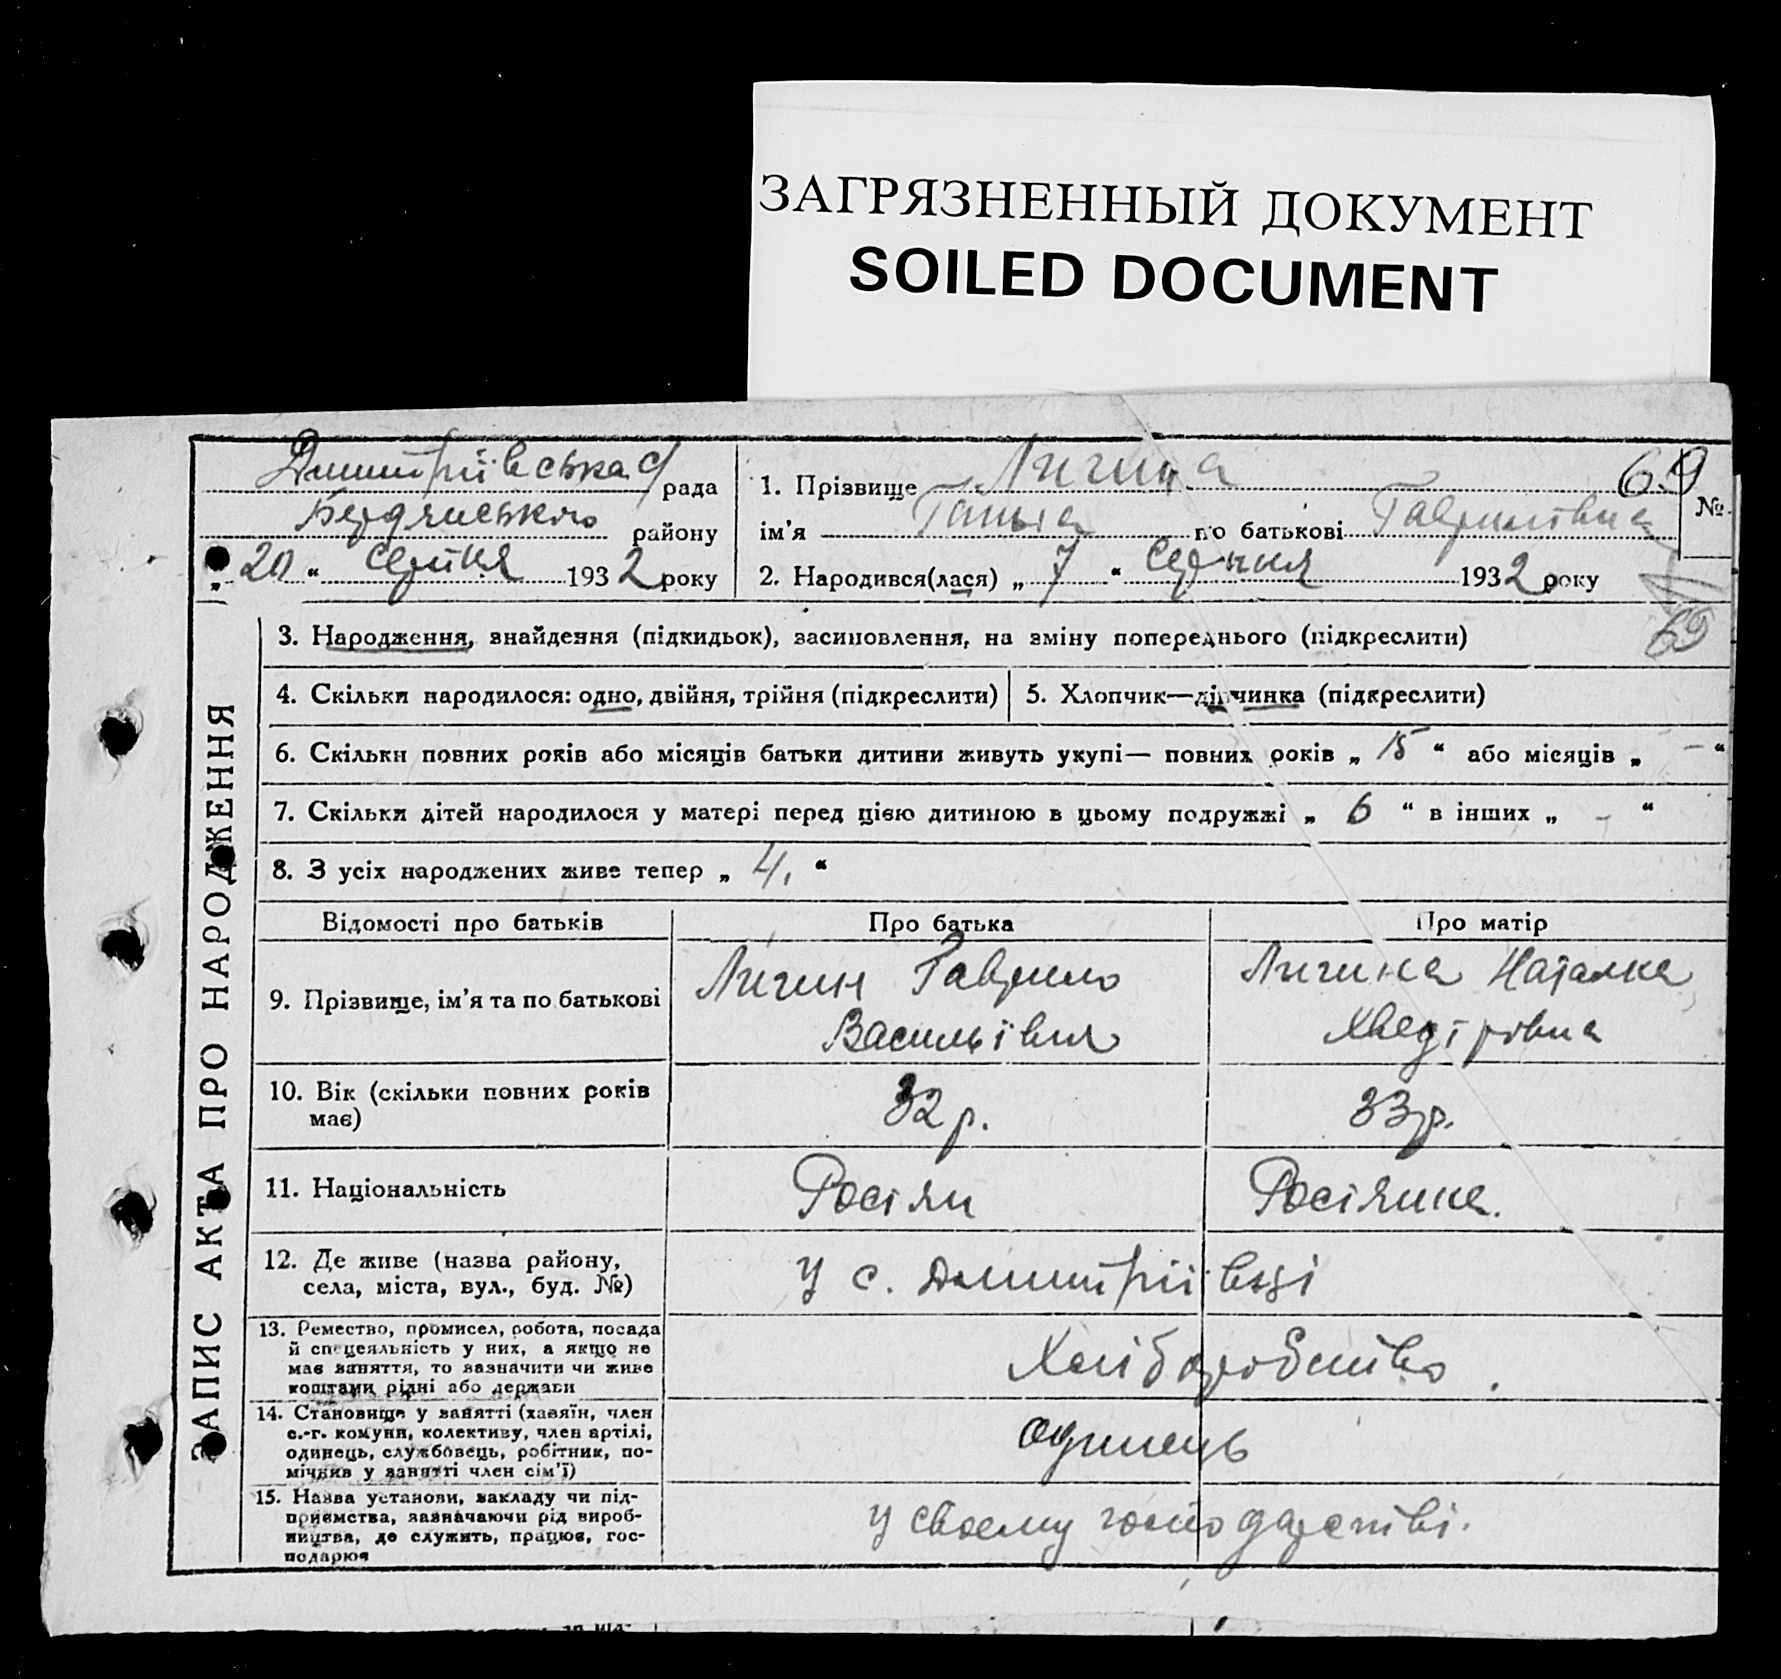 ЗАГРЯЗНЕННЫЙ ДОКУМЕНТ
SOILED DOCUMENT
ЗАПИС АКТА ПРО НАРОДЖЕННЯ
Дмитріївська с/рада
Бердянського району
„ 20 “ серпня 1932 року
1. Прізвище Лигина 69
№
ім'я Ганна по батькові Гаврилівна
2. Народився(лася) „ 7 “ 1932 року
69
3. Народження, знайдення (підкидьок), засиновлення, на зміну попереднього (підкреслити)
4. Скільки народилося: одно, двійня, трійня (підкреслити)
5. Хлопчик—дівчинка (підкреслити)
6. Скільки повних років або місяців батьки дитини живуть укупі— повних років „ 15 “ або місяців „ – “
7. Скільки дітей народилося у матері перед цією дитиною в цьому подружжі „ 6 “ в інших „ – “
8. З усіх народжених живе тепер „ 4. “
Відомості про батьків
Про батька
Про матір
9. Прізвище, ім'я та по батькові
Лигин Гаврило
Васильївич
Лигина Наталка
Хведірівна
10. Вік (скільки повних років
має)
32 р.
33 р.
11. Національність
Росіян
Росіянка.
12. Де живе (назва району,
села, міста, вул., буд. №)
у с. Дмитріївці
13. Ремество, промисел, робота, посада
й спеціяльність у них, а якщо не
має заняття, то зазначити чи живе
коштами рідні або держави
Хліборобство.
14. Становище у занятті (хазяїн, член
с.-г. комуни, колективу, член артілі,
одинець, службовець, робітник, по-
мічник у занятті член сім'ї)
одинець
15. Назва установи, закладу чи під-
приємства, зазначаючи рід вироб-
ництва, де служить, працює, гос-
подарює
у своєму господарстві.